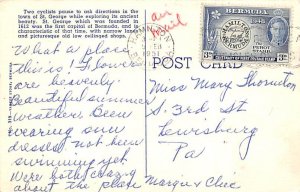 Two cyclists pause to ask directions in the
town of St. George while exploring its ancient
beauty. St. George which was founded in
1612 was the first capital of Bermuda, and is
characteristic of that time, with narrow lanes
and picturesque old low ceilinged shops.
air
Mail
BERMUDA
HAMILTON
BERMUDA
3d
3d
POST CARD
What a place
this is! Flowers
are heavenly.
Beautiful summer
weather. Been
wearing sun
dresses. Not been
swimming yet.
We're both crazy
about the place
Margie & Chic
Miss Mary Thornton
S. 3rd St
Lewisburg
Pa